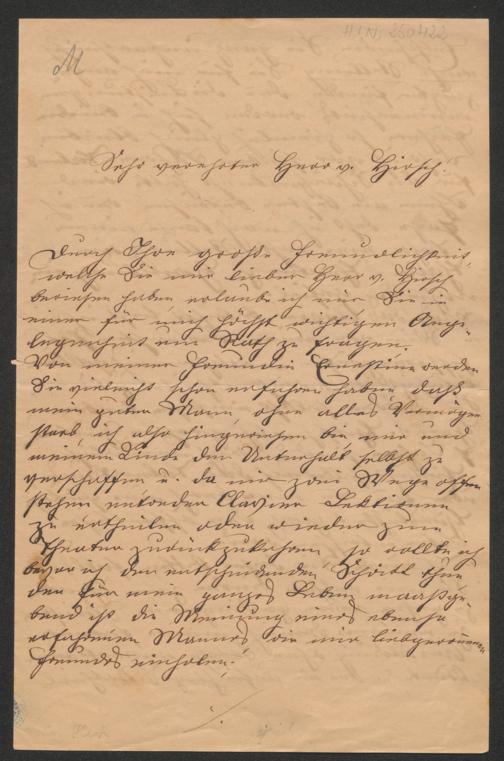 H.I.N. 260422
M
Sehr verehrter Herr v. Hirsch.
Durch Ihre große Freundlichkeit,
welche Sie mir lieber Herr v. Hirsch
bewiesen haben, erlaube ich mir Sie in
einer für mich höchst wichtigen Ange-
legenheit um Rath zu fragen.
Von meiner Freundin Ernestine werden
Sie vielleicht schon erfahren haben, daß
mein guter Mann, ohne alles Vermögen
starb, ich also hingewiesen bin mir und
meinem Kinde den Unterhalt selbst zu
verschaffen u. da mir zwei Wege offen
stehen entweder Clavier Lektionen
zu ertheilen oder wieder zum
Theater zurückzukehren, so wollte ich
bevor ich den entscheidenden Schritt thue
der für mein ganzes Leben maaßge-
bend ist die Meinung eines ebenso
erfahrenen Mannes, wie mir liebgewonnenen
Freundes einholen.